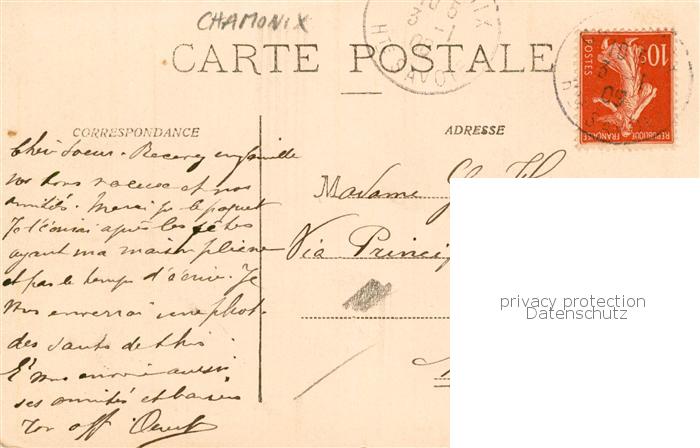 CHAMONIX
CARTE POSTALE
CORRESPONDANCE
ADRESSE
10
POSTES
REPUBLIQUE FRANÇAISE
HTE SAVOIE
Chère Soeur. Recevez en famille
vos bons vœux et nos
amitiés. Merci pr le paquet
Je t'écrirai après les fêtes
ayant ma maison pleine
et pas le temps d'écrire. Je
vous enverrai une phot.
des sauts de
Il vous envoie aussi
ses amitiés et baisers
Ton aff.
Madame
Via Princip
privacy protection
Datenschutz